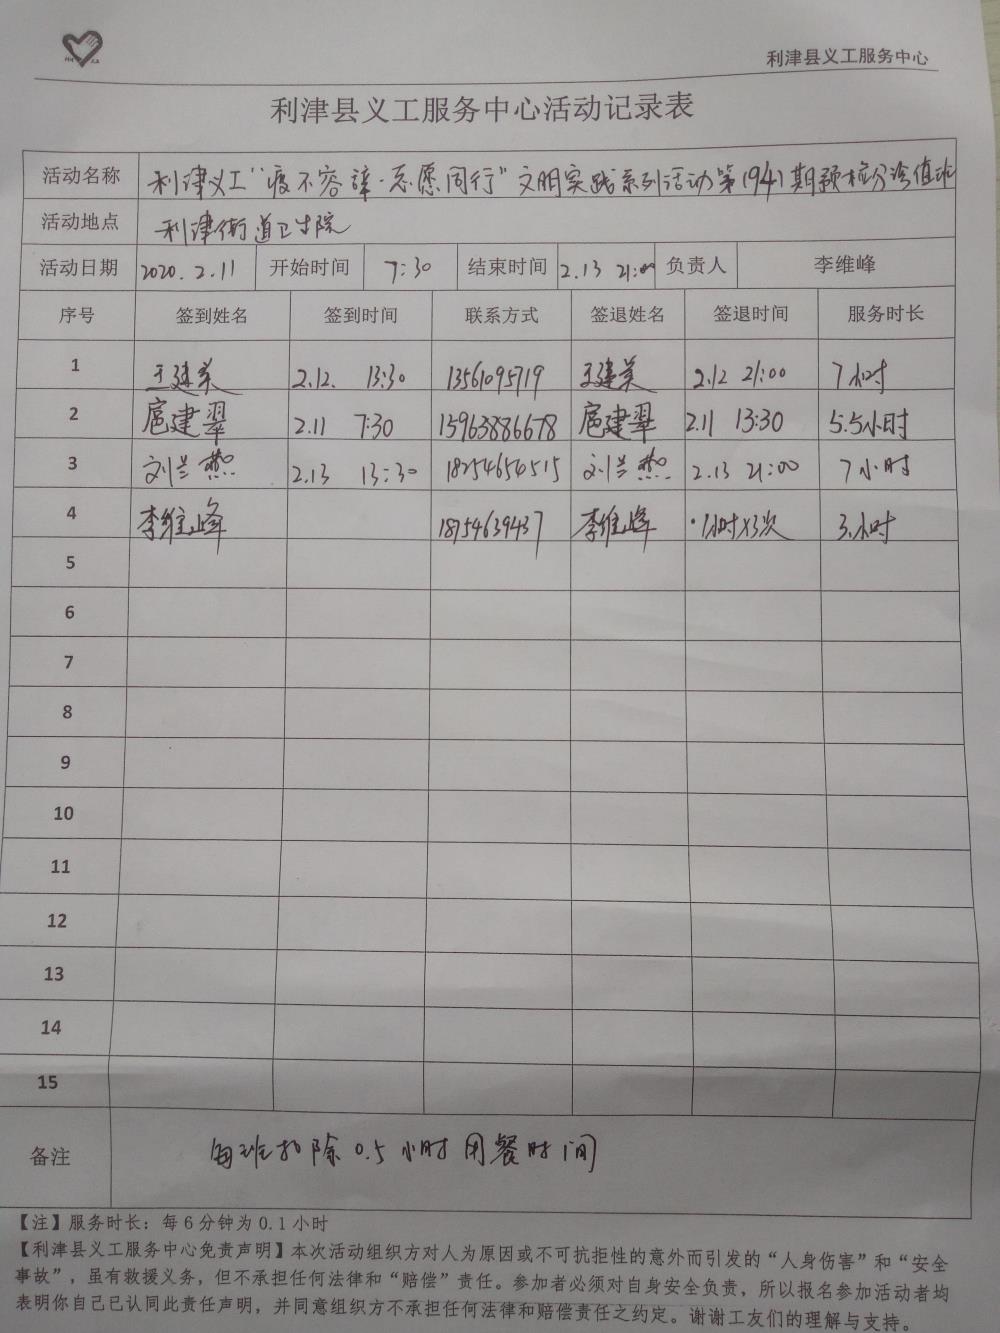 利津县义工服务中心
利津县义工服务中心活动记录表
活动名称 利津义工“疫不容辞·志愿同行”文明实践系列活动第1941期预检分诊值班
活动地点 利津街道卫生院
活动日期 2020.2.11 开始时间 7:30 结束时间 2.13 21:00 负责人 李维峰
序号 签到姓名 签到时间 联系方式 签退姓名 签退时间 服务时长
1 王建美 2.12. 13:30 13561095719 王建美 2.12 21:00 7小时
2 扈建翠 2.11 7:30 15963886678 扈建翠 2.11 13:30 5.5小时
3 刘兰燕 2.13 13:30 18254654515 刘兰燕 2.13 21:00 7小时
4 李维峰 18754639437 李维峰 1小时×3次 3小时
5
6
7
8
9
10
11
12
13
14
15
备注 每班扣除0.5小时用餐时间
【注】服务时长：每6分钟为0.1小时
【利津县义工服务中心免责声明】本次活动组织方对人为原因或不可抗拒性的意外而引发的“人身伤害”和“安全
事故”，虽有救援义务，但不承担任何法律和“赔偿”责任。参加者必须对自身安全负责，所以报名参加活动者均
表明你自己已认同此责任声明，并同意组织方不承担任何法律和赔偿责任之约定。谢谢工友们的理解与支持。